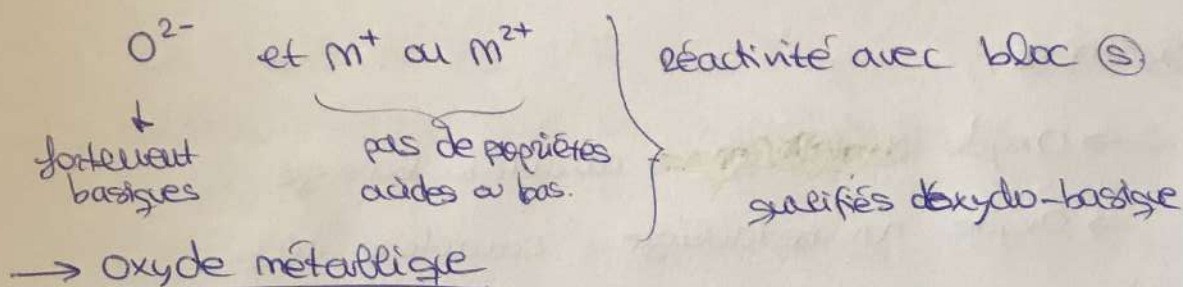 O²⁻ et m⁺ ou m²⁺ réactivité avec bloc ⓢ
↓
fortement pas de propriétés
basiques acides ou bas.
qualifiés d'oxydo-basique
→ oxyde métallique